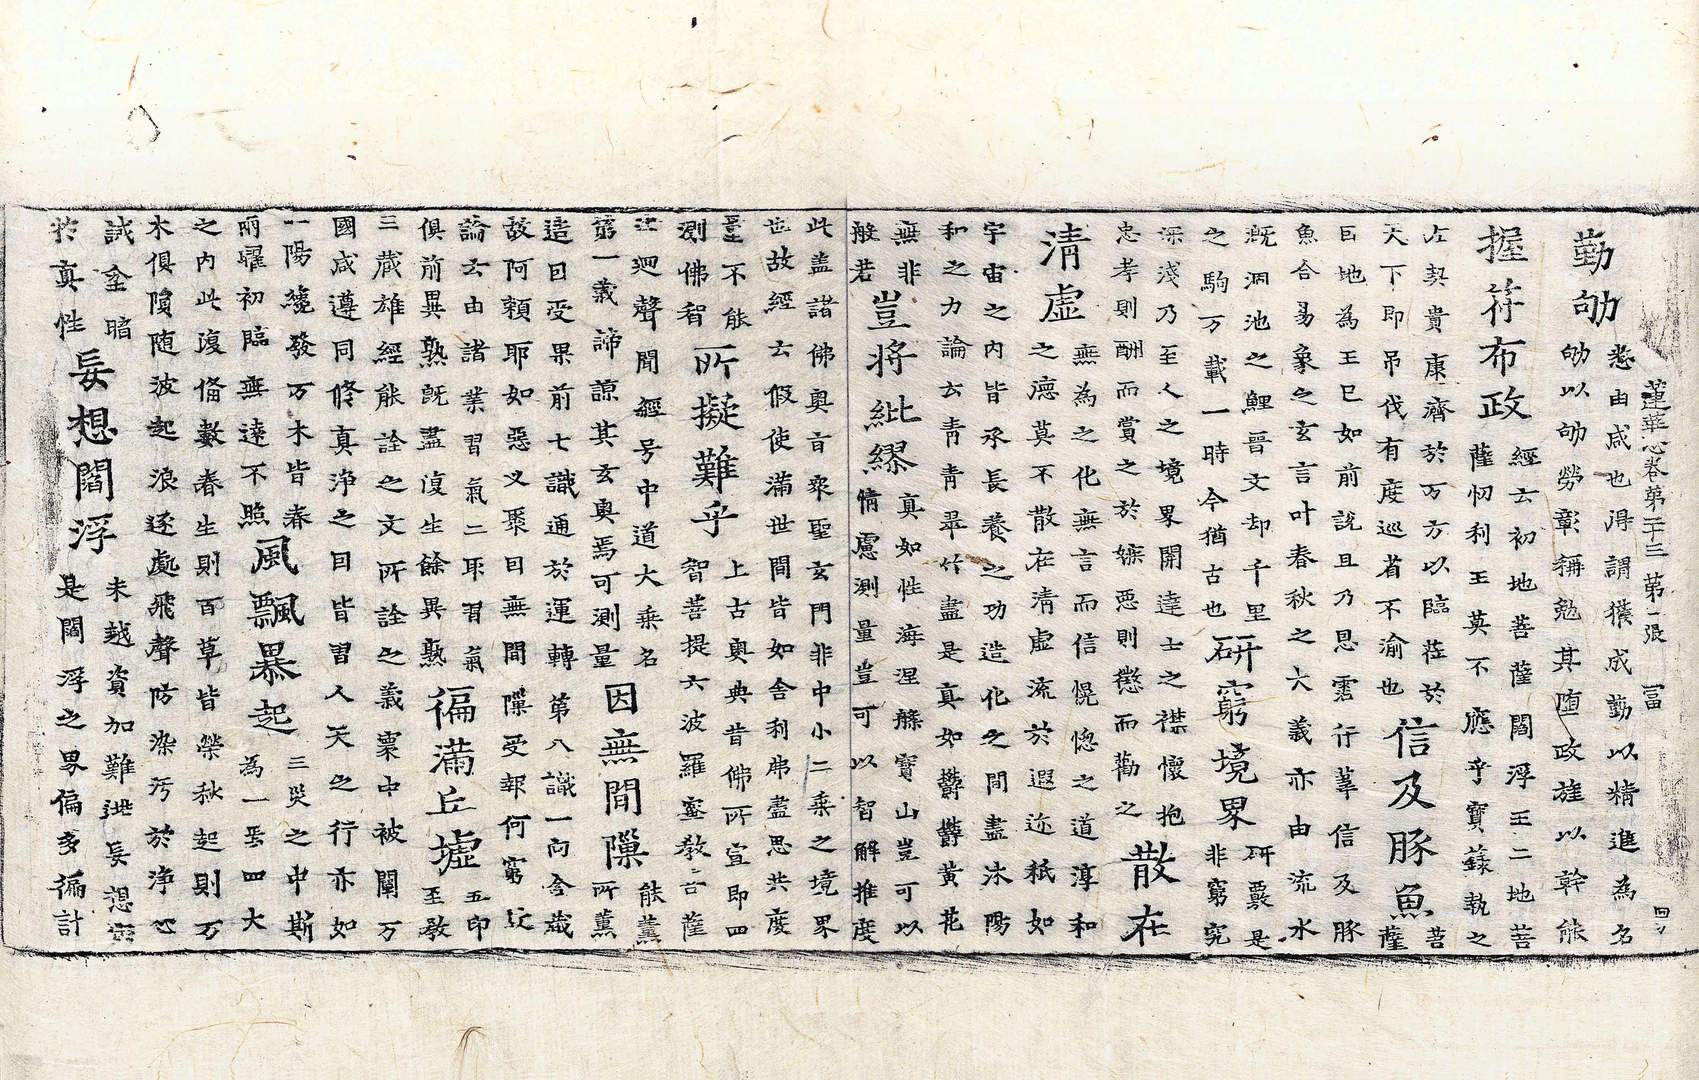 蓮華心卷第二十三 第一張 冨
勤劬
悉由咸也得謂獲成勤以精進為名
劬以劬勞彰稱勉其墮政旌以幹能
握符布政
經云初地菩薩閻浮王二地菩
薩忉利王莫不應乎寶籙執之
左契貴康濟於万方以臨莅於
天下即吊伐有度巡省不渝也
信及豚魚
菩薩
巨地為王已如前說且乃恩霑行葦信及豚
魚合易象之玄言叶春秋之大義亦由流水
既洞池之鯉晉文却千里
之駒万載一時今猶古也
研窮境界
研覈是
非窮究
深淺乃至人之境界開達士之襟懷抱
忠孝則酬而賞之於嫉惡則懲而勸之
散在
清虛
無為之化無言而信慌惚之道淳和
之德莫不散在清虛流於遐迩秪如
宇宙之內皆承長養之功造化之間盡沐陽
和之力論云青青翠竹盡是真如鬱鬱黃花
無非
般若
豈將紕繆
真如性海涅槃寶山豈可以
情慮測量豈可以智解推度
此盖諸佛奧旨衆聖玄門非中小二乘之境界
也故經云假使滿世間皆如舍利弗盡思共度
量不能
測佛智
所擬難乎
上古奧典昔佛所宣即四
智菩提六波羅蜜教菩薩
迴聲聞經号中道大乘名
第一義諦諒其玄奧焉可測量
因無間隟
能薰
所薰
造曰受果前七識通於運轉第八識一向含藏
故阿賴耶如惡叉聚曰無間隟受報何窮
論云由諸業習氣二取習氣
俱前異熟既盡復生餘異熟
徧滿丘墟
五印
至教
三藏雄經能詮之文所詮之義稟中被闡万
國咸遵同修真淨之因皆習人天之行亦如
一陽纔發万木皆春
兩曜初臨無遠不照
風飄暴起
三灾之中斯
為一焉四大
之內此復俻數春生則百草皆榮秋起則万
木俱隕随波起浪逐處飛聲防染污於淨心
誡全暗
於真性
妄想閻浮
未越資加難逃妄想
是閻浮之界偏多徧計